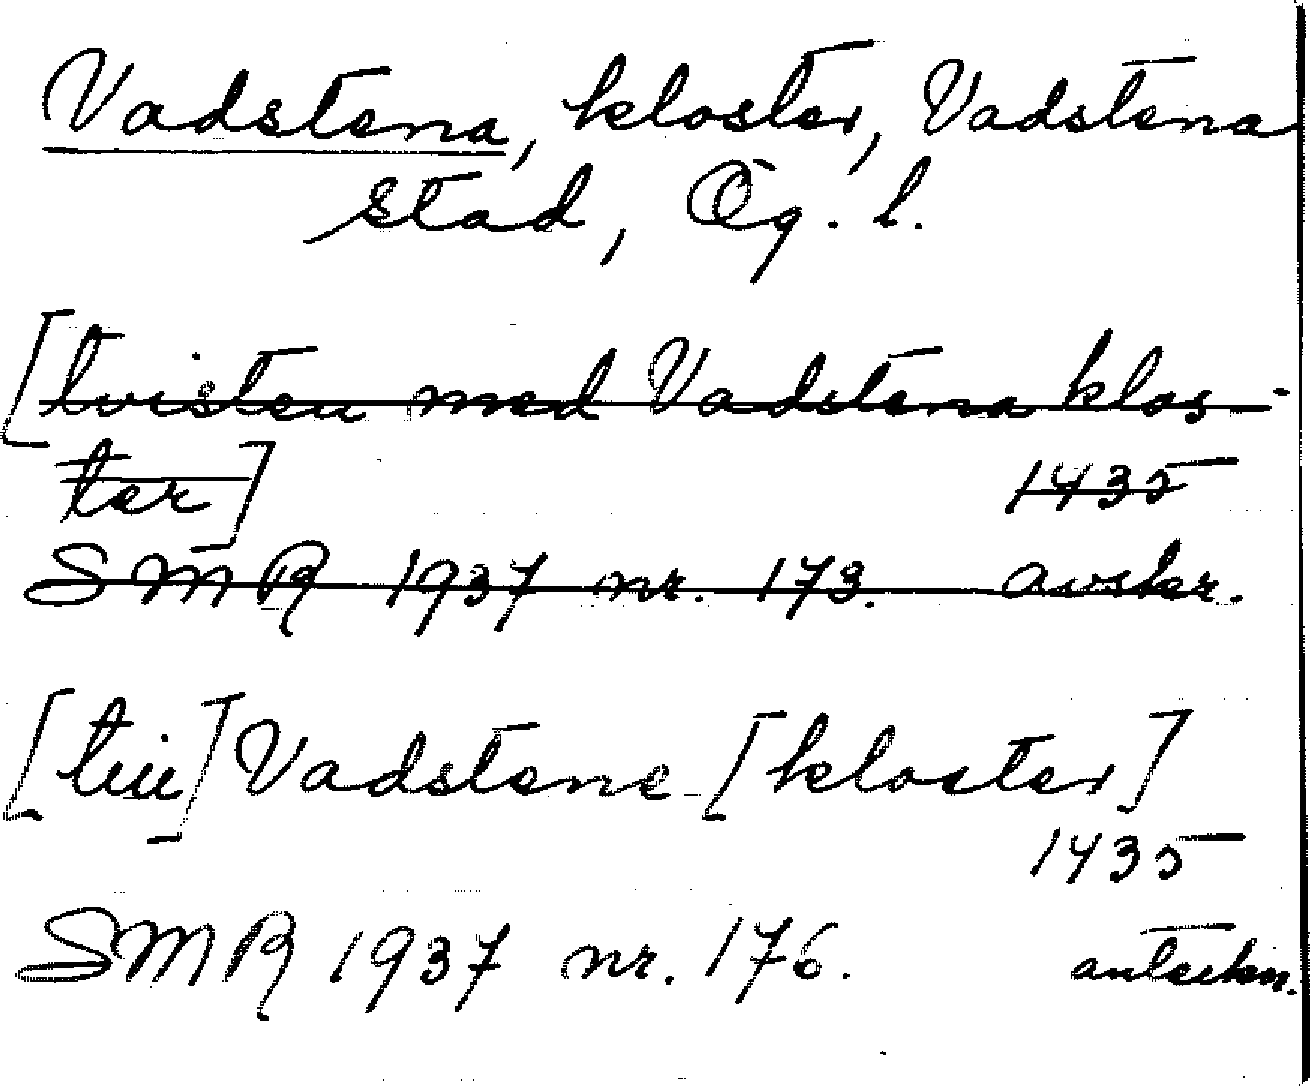 Vadstena, kloster, Vadstena
stad, Ög. l.
[tvisten med Vadstena klos-
ter] 1435
SMR 1937 nr. 173. avskr.
[till] Vadstene [kloster]
1435
SMR 1937 nr. 176. anteckn.